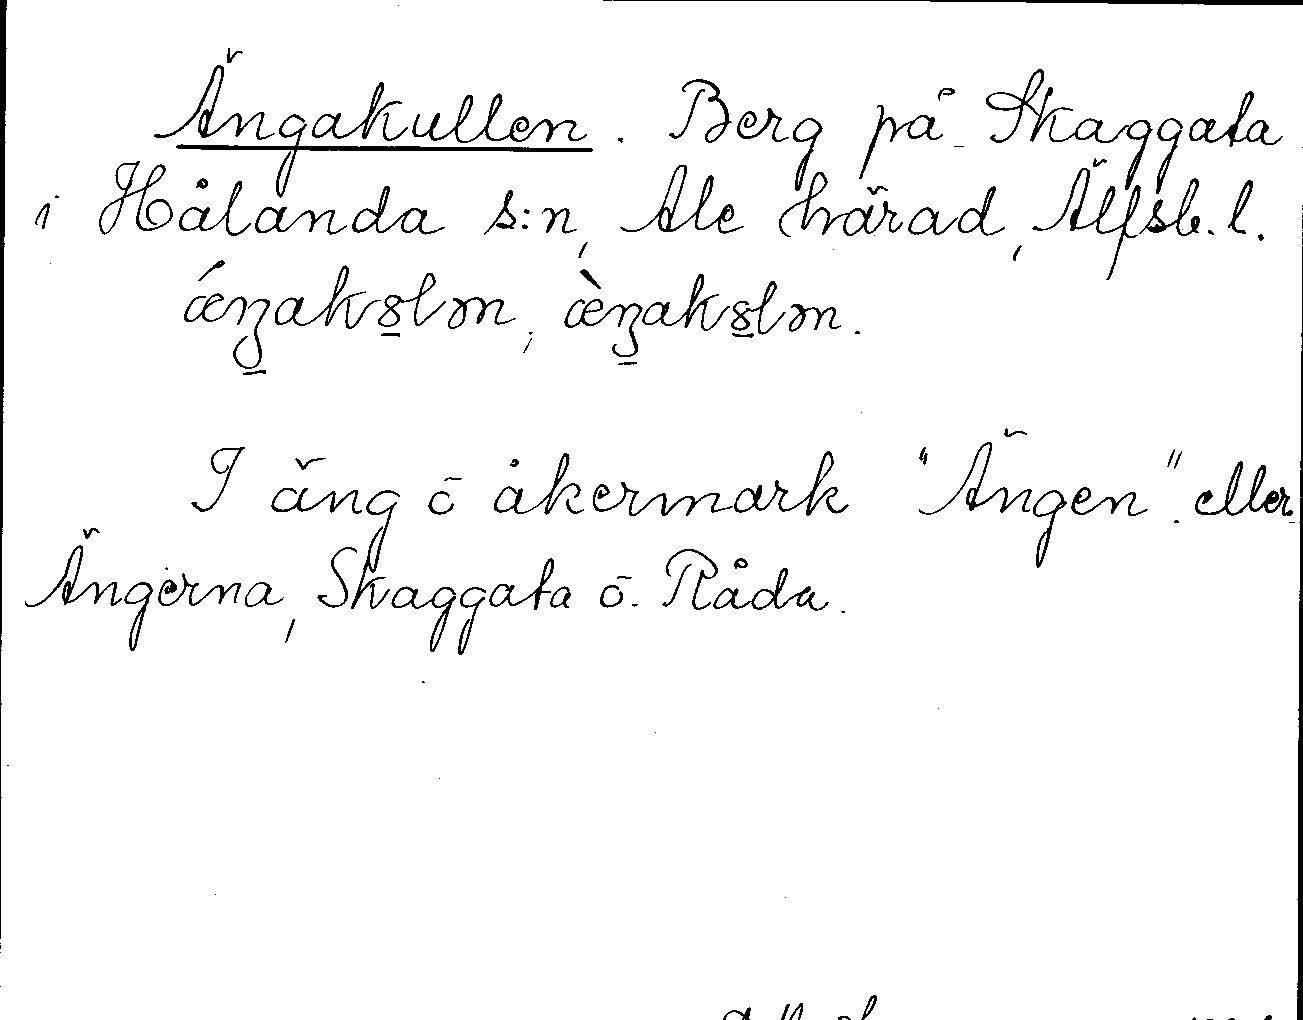 Ängakullen. Berg på Skaggata
i Hålanda s:n, Ale härad, Älfsb. l.
ǽŋakꝏlən; æ̀ŋakꝏlən.
I äng ō åkermark "Ängen". eller
Ängerna, Skaggata ō. Råda.